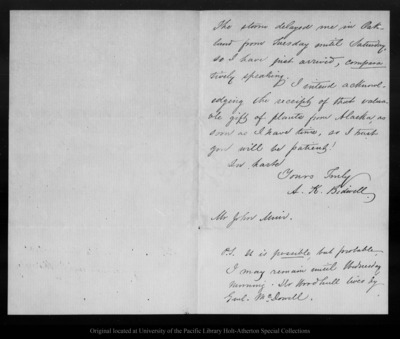 The storm delayed me in Oak-
land from Tuesday until Saturday,
so I have just arrived, compara-
tively speaking.
I intend acknowl-
edging the receipt of that valua-
ble gift of plants from Alaska, as
soon as I have time, so I trust
you will be patient!
In haste
Yours Truly
A. K. Bidwell
Mr John Muir.
P.S. It is possible, but probable,
I may remain until Wednesday
morning. Dr Woodhull lives by
Genl. McDowell.
Original located at University of the Pacific Library Holt-Atherton Special Collections